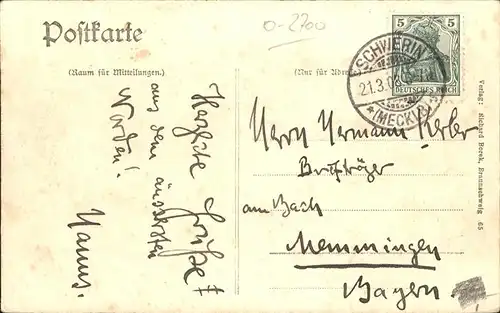 0-2700
Postkarte
(Raum für Mitteilungen.)
Herzlste Grüße
aus dem äussersten
Norden!
Hanns.
(Nur für
5 5
DEUTSCHES REICH
SCHWERIN
21.3.08
* (MECKLB)
Herrn Hermann Kerler
Briefträger
am Bach
Memmingen
Bayern.
Verlag: Richard Borek, Braunschweig 65